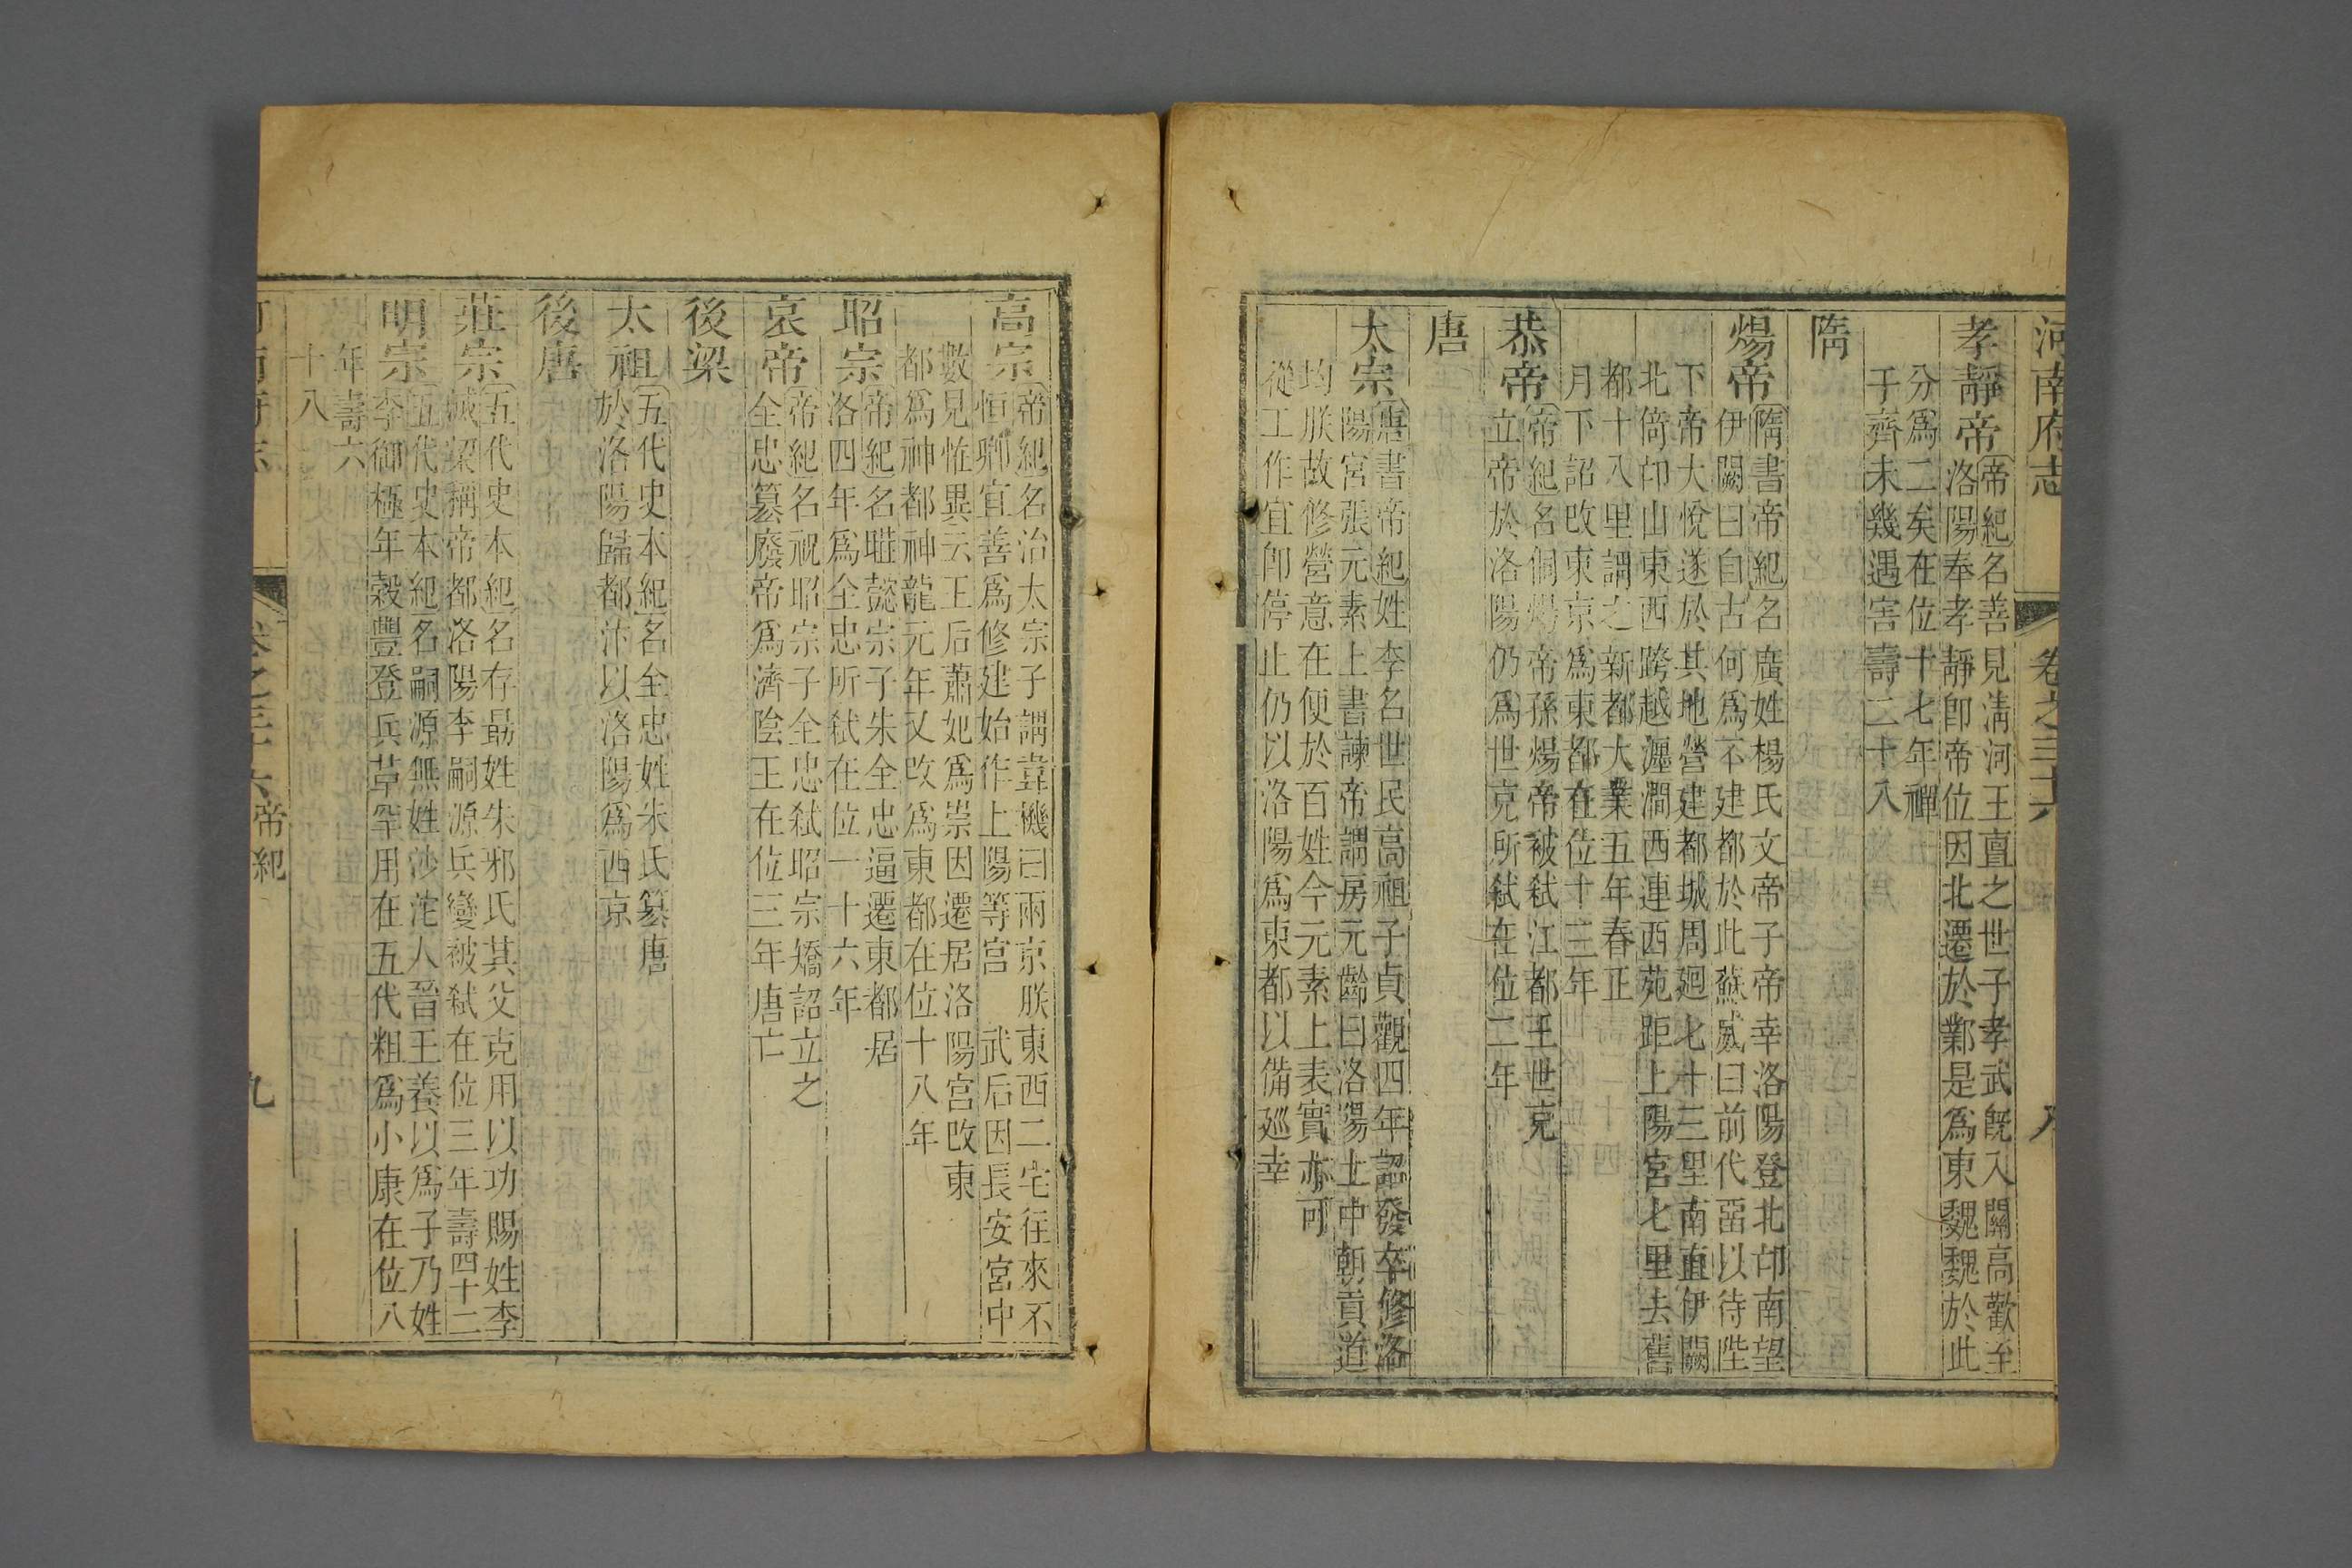 河南府志 卷之三十六 八
孝靜帝帝紀名善見清河王亶之世子孝武旣入關高歡至
洛陽奉孝靜卽帝位因北遷於鄴是爲東魏魏於此
分爲二矣在位十七年禪
于齊未幾遇害壽二十八
隋
煬帝隋書帝紀名廣姓楊氏文帝子帝幸洛陽登北邙南望
伊闕曰自古何爲不建都於此蘇威曰前代畱以待陛
下帝大悅遂於其地營建都城周廻七十三里南直伊闕
北倚邙山東西跨越瀍澗西連西苑距上陽宮七里去舊
都十八里謂之新都大業五年春正
月下詔改東京爲東都在位十三年
恭帝帝紀名侗煬帝孫煬帝被弑江都王世克
立帝於洛陽仍爲世克所弑在位二年
唐
太宗唐書帝紀姓李名世民高祖子貞觀四年詔發卒修洛
陽宮張元素上書諫帝謂房元齡曰洛陽土中朝貢道
均朕故修營意在便於百姓今元素上表實亦可
從工作宜卽停止仍以洛陽爲東都以備巡幸
高宗帝紀名治太宗子謂韋機曰兩京朕東西二宅往來不
恒卿宜善爲修建始作上陽等宮 武后因長安宮中
數見怪異云王后蕭妃爲祟因遷居洛陽宮改東
都爲神都神龍元年又改爲東都在位十八年
昭宗帝紀名曄懿宗子朱全忠逼遷東都居
洛四年爲全忠所弑在位一十六年
哀帝帝紀名柷昭宗子全忠弑昭宗矯詔立之
全忠簒廢帝爲濟陰王在位三年唐亡
後梁
太祖五代史本紀名全忠姓朱氏簒唐
於洛陽歸都汴以洛陽爲西京
後唐
莊宗五代史本紀名存勗姓朱邪氏其父克用以功賜姓李
滅梁稱帝都洛陽李嗣源兵變被弑在位三年壽四十二
明宗五代史本紀名嗣源無姓沙沱人晉王養以爲子乃姓
李御極年穀豐登兵革罕用在五代粗爲小康在位八
年壽六
十八
卷之三十六 帝紀 九